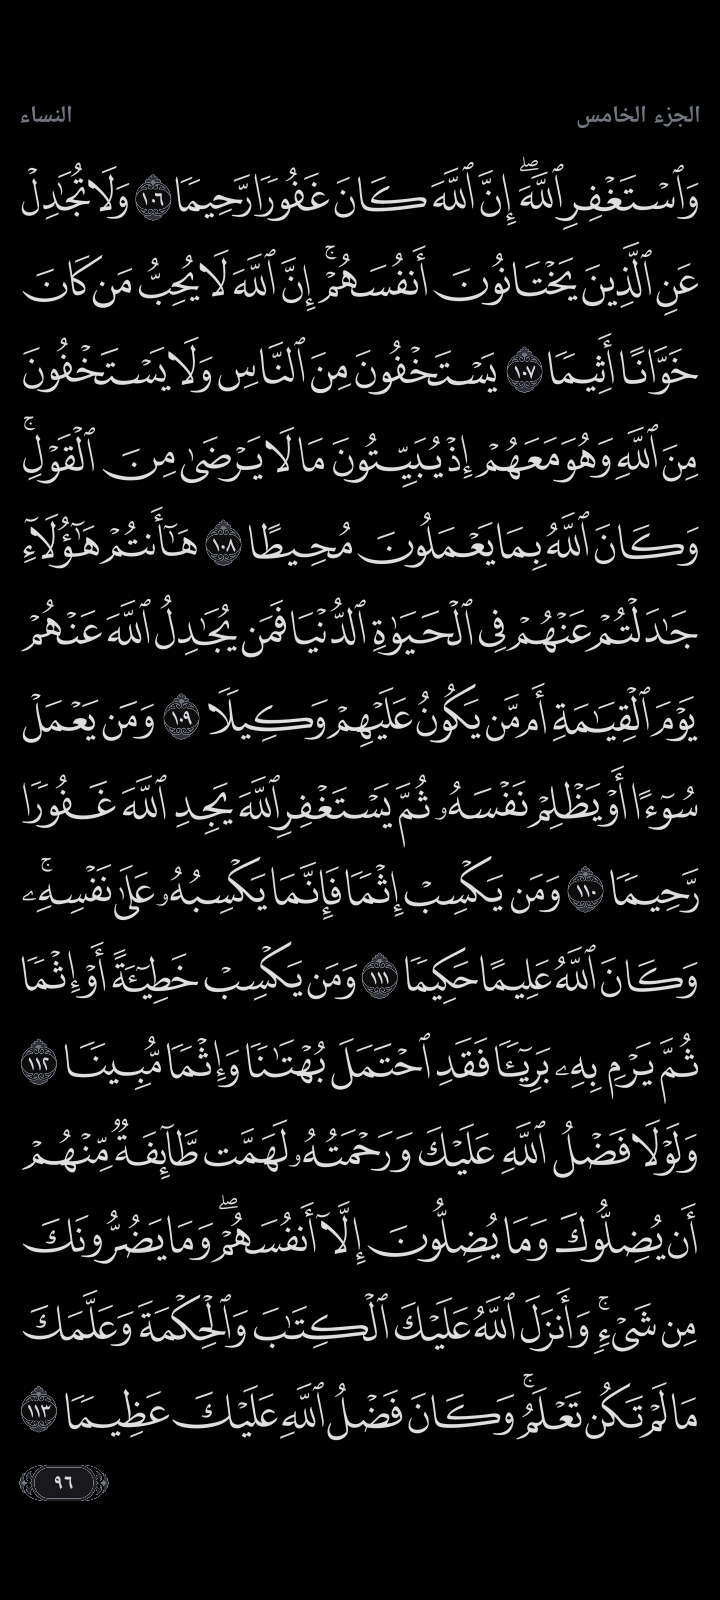 الجزء الخامس
النساء
وَٱسْتَغْفِرِ ٱللَّهَۖ إِنَّ ٱللَّهَ كَانَ غَفُورًا رَّحِيمًا ١٠٦ وَلَا تُجَٰدِلْ
عَنِ ٱلَّذِينَ يَخْتَانُونَ أَنفُسَهُمْۚ إِنَّ ٱللَّهَ لَا يُحِبُّ مَن كَانَ
خَوَّانًا أَثِيمًا ١٠٧ يَسْتَخْفُونَ مِنَ ٱلنَّاسِ وَلَا يَسْتَخْفُونَ
مِنَ ٱللَّهِ وَهُوَ مَعَهُمْ إِذْ يُبَيِّتُونَ مَا لَا يَرْضَىٰ مِنَ ٱلْقَوْلِۚ
وَكَانَ ٱللَّهُ بِمَا يَعْمَلُونَ مُحِيطًا ١٠٨ هَٰٓأَنتُمْ هَٰٓؤُلَآءِ
جَٰدَلْتُمْ عَنْهُمْ فِى ٱلْحَيَوٰةِ ٱلدُّنْيَا فَمَن يُجَٰدِلُ ٱللَّهَ عَنْهُمْ
يَوْمَ ٱلْقِيَٰمَةِ أَم مَّن يَكُونُ عَلَيْهِمْ وَكِيلًا ١٠٩ وَمَن يَعْمَلْ
سُوٓءًا أَوْ يَظْلِمْ نَفْسَهُۥ ثُمَّ يَسْتَغْفِرِ ٱللَّهَ يَجِدِ ٱللَّهَ غَفُورًا
رَّحِيمًا ١١٠ وَمَن يَكْسِبْ إِثْمًا فَإِنَّمَا يَكْسِبُهُۥ عَلَىٰ نَفْسِهِۦۚ
وَكَانَ ٱللَّهُ عَلِيمًا حَكِيمًا ١١١ وَمَن يَكْسِبْ خَطِيٓـَٔةً أَوْ إِثْمًا
ثُمَّ يَرْمِ بِهِۦ بَرِيٓـًٔا فَقَدِ ٱحْتَمَلَ بُهْتَٰنًا وَإِثْمًا مُّبِينًا ١١٢
وَلَوْلَا فَضْلُ ٱللَّهِ عَلَيْكَ وَرَحْمَتُهُۥ لَهَمَّت طَّآئِفَةٌ مِّنْهُمْ
أَن يُضِلُّوكَ وَمَا يُضِلُّونَ إِلَّآ أَنفُسَهُمْۖ وَمَا يَضُرُّونَكَ
مِن شَىْءٍۚ وَأَنزَلَ ٱللَّهُ عَلَيْكَ ٱلْكِتَٰبَ وَٱلْحِكْمَةَ وَعَلَّمَكَ
مَا لَمْ تَكُن تَعْلَمُۚ وَكَانَ فَضْلُ ٱللَّهِ عَلَيْكَ عَظِيمًا ١١٣
٩٦